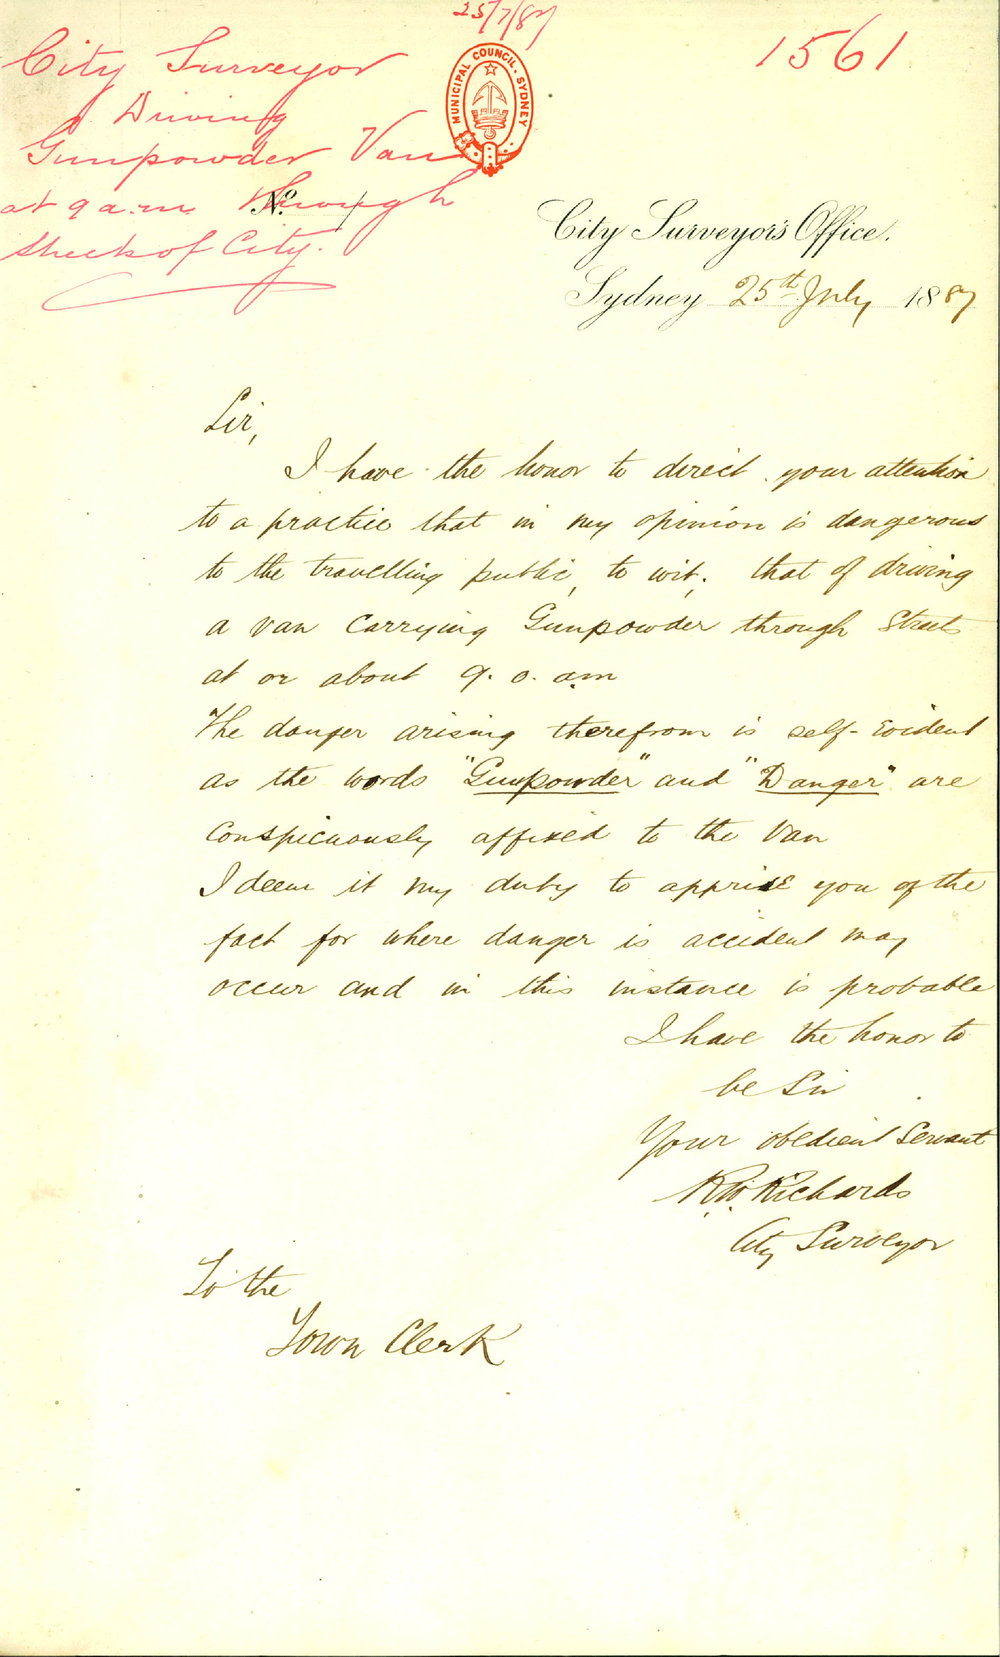 25/7/87
1561
City Surveyor
Driving
Gunpowder Van
at 9 a.m. through
streets of City.
MUNICIPAL COUNCIL. SYDNEY
No.
City Surveyor's Office.
Sydney 25th July 1887
Sir,
I have the honor to direct your attention
to a practice that in my opinion is dangerous
to the travelling public, to wit, that of driving
a van carrying Gunpowder through Streets
at or about 9. o. am
The danger arising therefrom is self-evident
as the words "Gunpowder" and "Danger" are
conspicuously affixed to the Van
I deem it my duty to apprise you of the
fact for where danger is accident may
occur and in this instance is probable
I have the honor to
be Sir
Your obedient Servant
R.W. Richards
City Surveyor
To the
Town Clerk